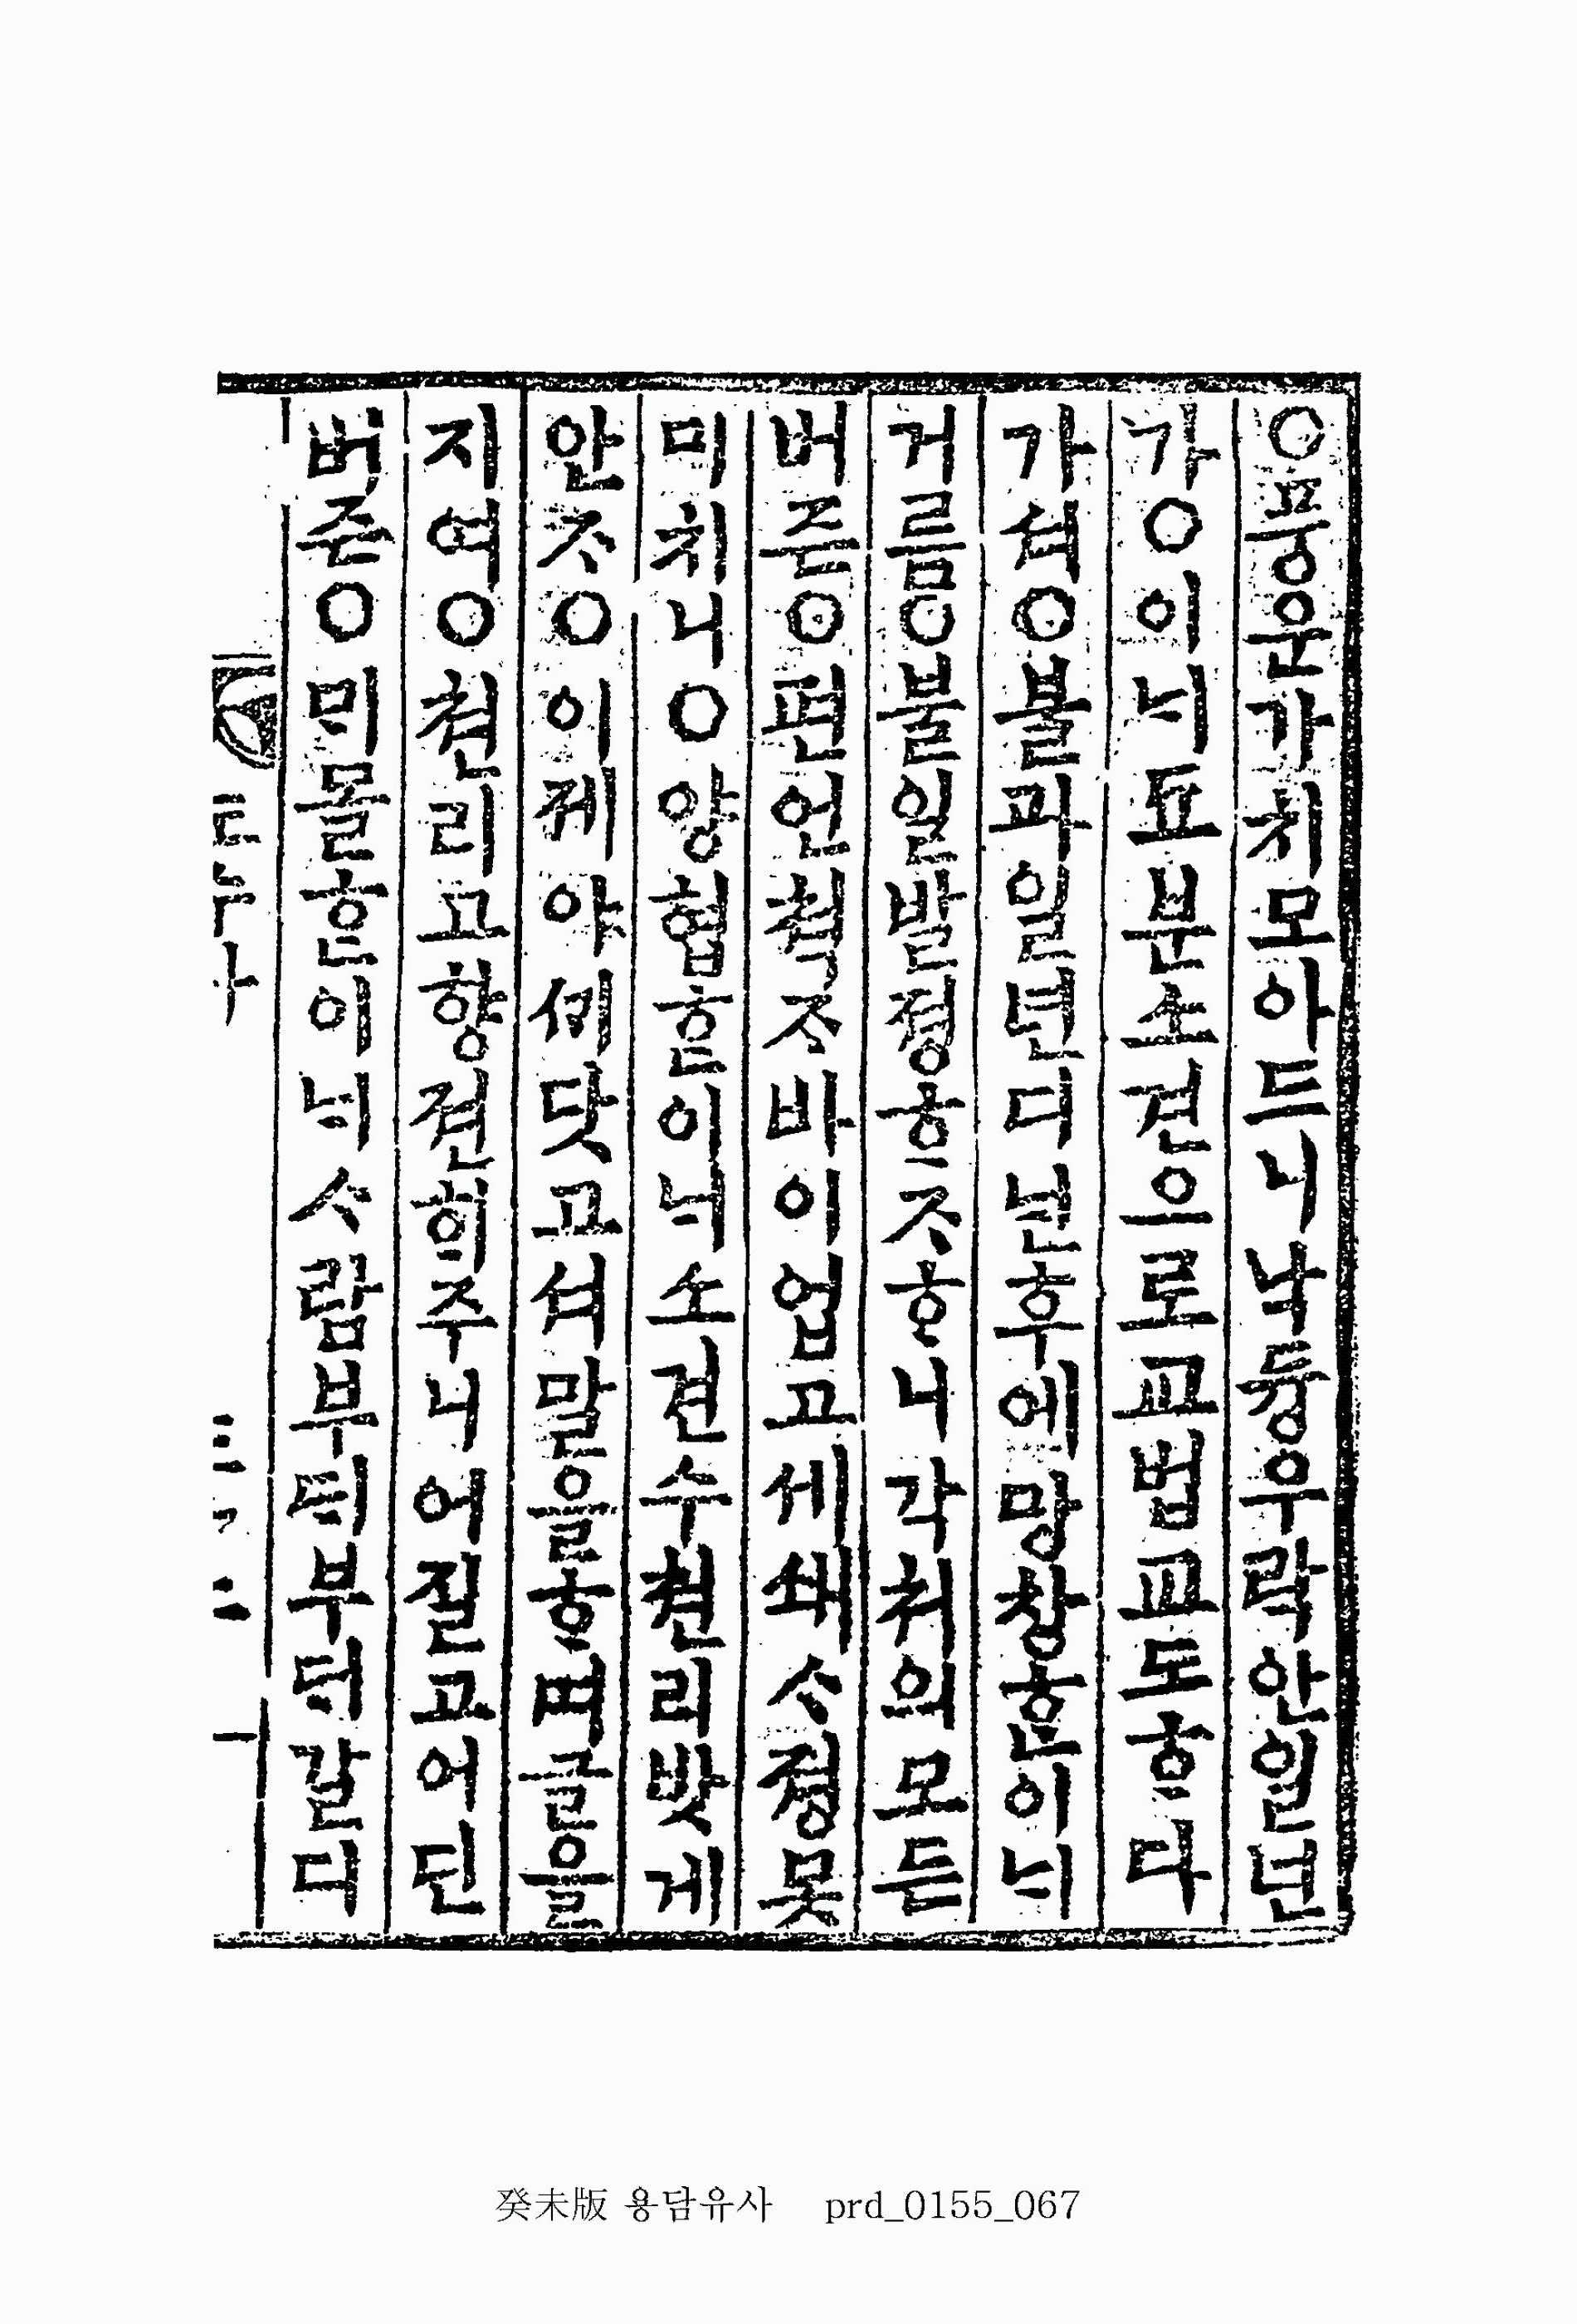 ○풍운가치모아드니낙듕우락안일년
가○이ᄂᆡ됴분소견으로교법교도ᄒᆞ다
가셔○불과일년디ᄂᆡᆫ후에망창ᄒᆞᆫ이ᄂᆡ
거름○불일발졍ᄒᆞᄌᆞᄒᆞ니각쳐의모든
버즌○편언쳑ᄌᆞ바이업고세쇄ᄉᆞ졍못
미치니○양협ᄒᆞᆫ이ᄂᆡ소견수쳔리밧게
안ᄌᆞ○이졔야ᄭᆡ닷고셔말을ᄒᆞ며글을
지여○쳔리고향젼ᄒᆡ주니어질고어딘
버즌○ᄆᆡ몰ᄒᆞᆫ이ᄂᆡᄉᆞ람부ᄃᆡ부ᄃᆡ갈디
癸未版 용담유사 prd_0155_067